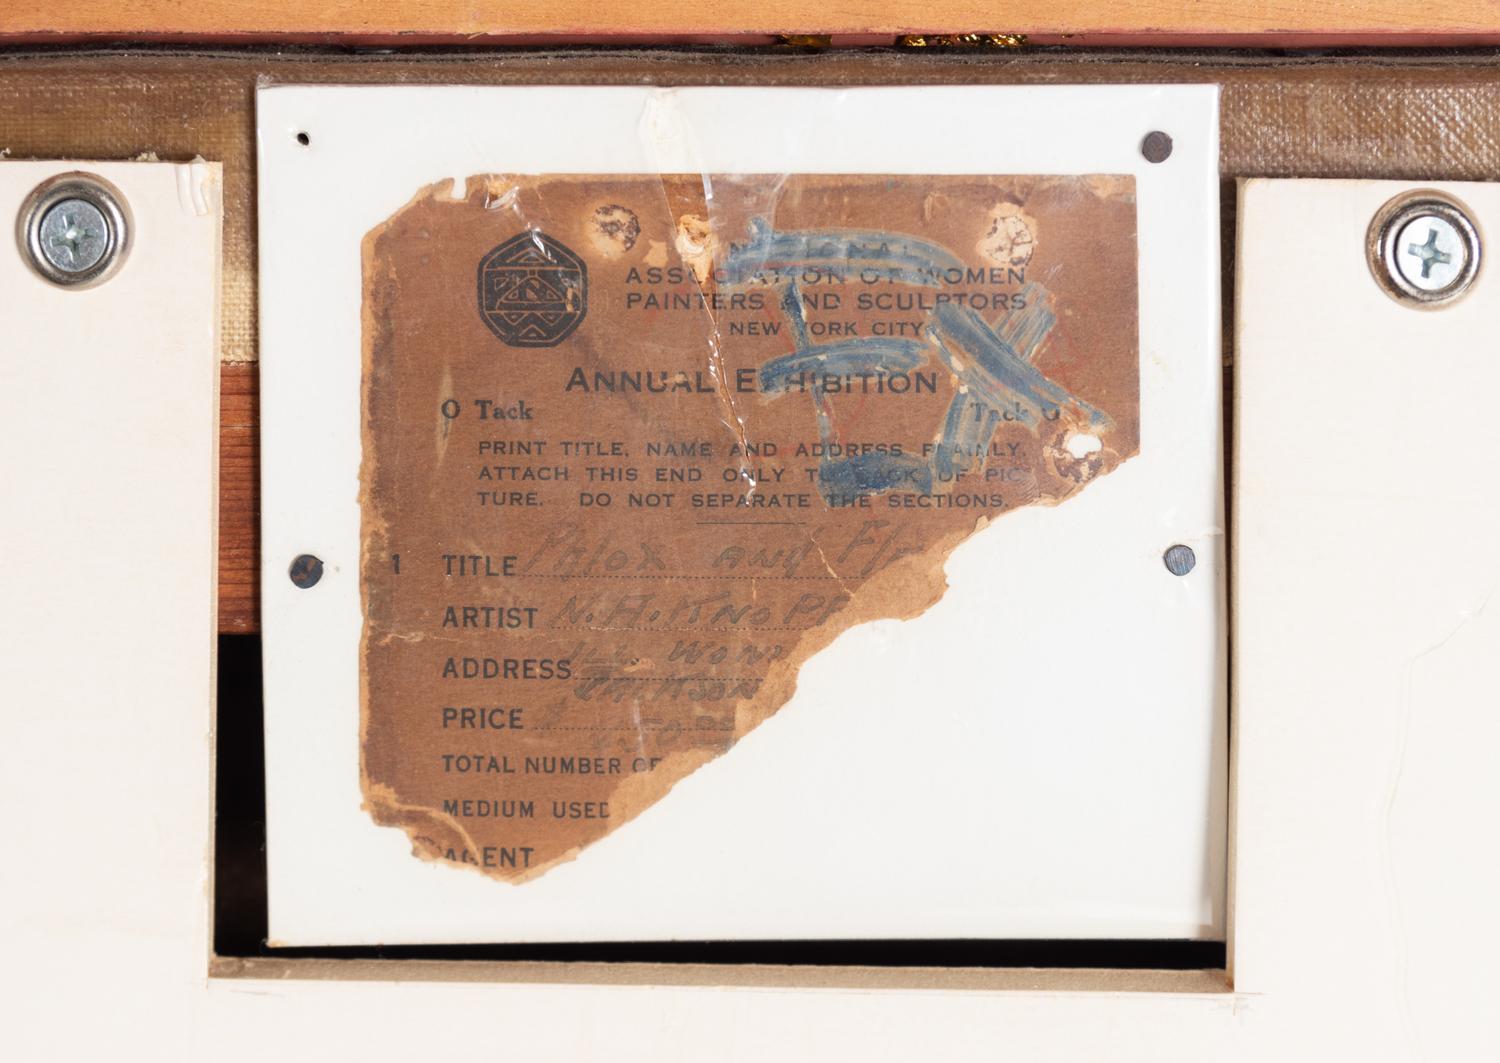 NATIONAL
ASSOCIATION OF WOMEN
PAINTERS AND SCULPTORS
NEW YORK CITY
ANNUAL EXHIBITION
O Tack Tack O
PRINT TITLE, NAME AND ADDRESS PLAINLY.
ATTACH THIS END ONLY TO BACK OF PIC
TURE. DO NOT SEPARATE THE SECTIONS.
1 TITLE Phlox and Fl
ARTIST N. A. KNOPF
ADDRESS
PRICE $
TOTAL NUMBER OF
MEDIUM USED
AGENT